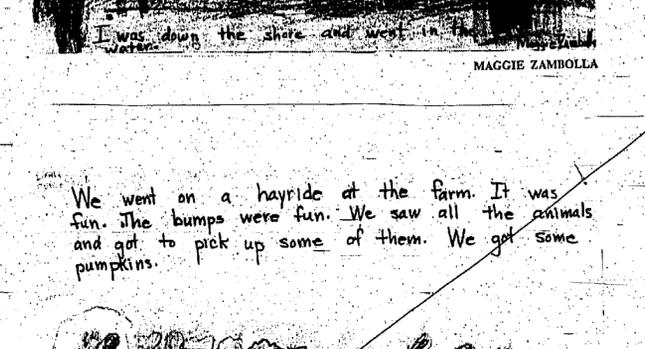 I was down the shore and went in the
water.
Maggie Zambolla
MAGGIE ZAMBOLLA
We went on a hayride at the farm. It was
fun. The bumps were fun. We saw all the animals
and got to pick up some of them. We got some
pumpkins.